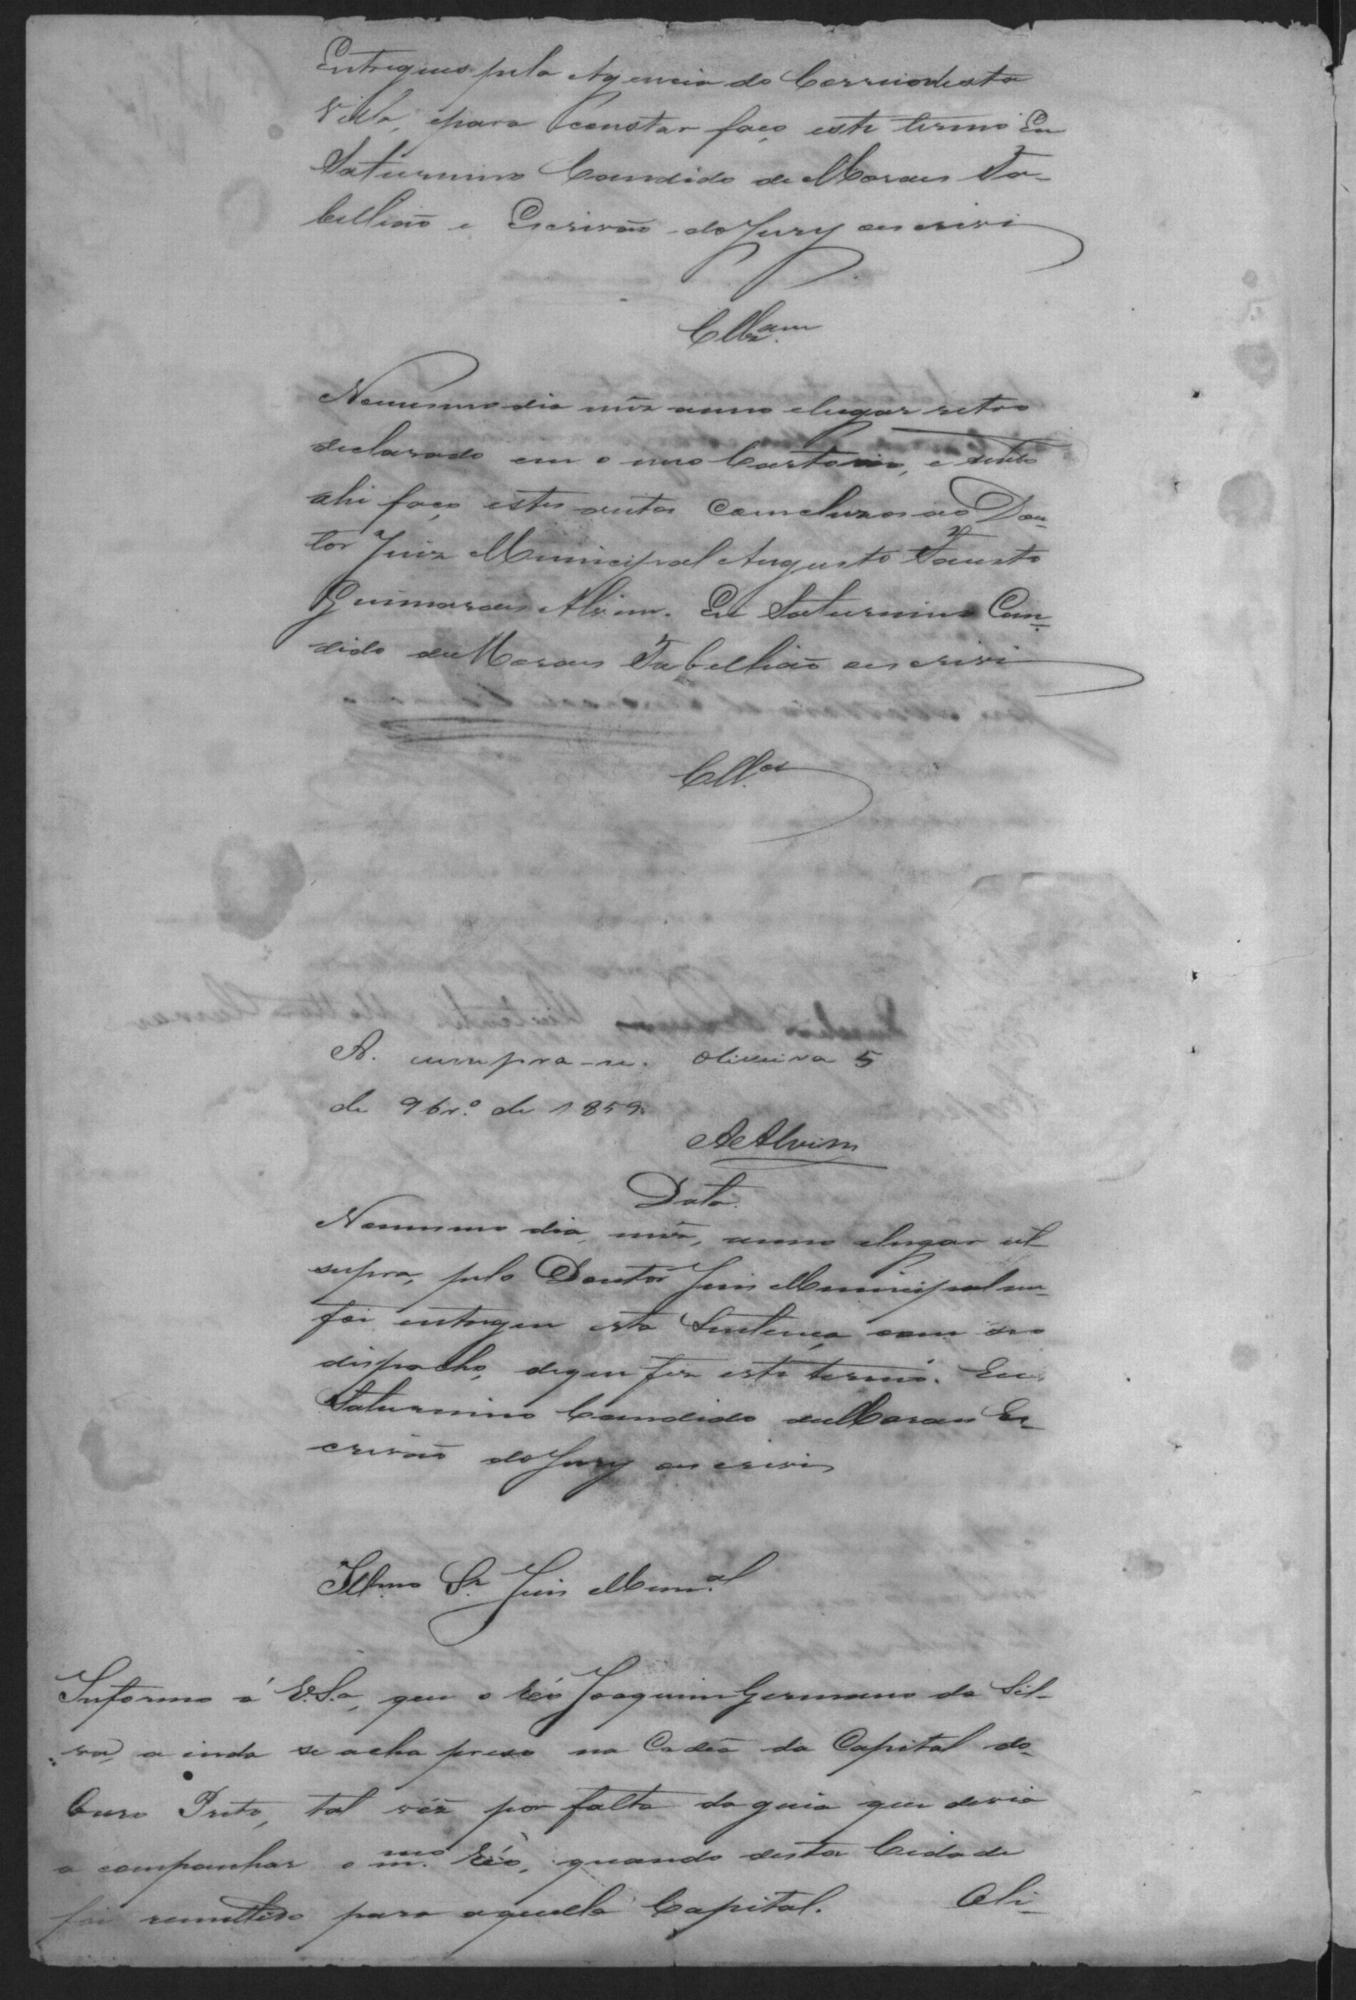 Entregues pela Agencia do Correio desta
Villa, epara constar faço este termo Eu
Saturnino Candido de Moraes Ta-
bellião e Escrivão do Jury oescrivi
Cllzam
Nomesmo dia mêz anno elugar retro
declarado em o meo Cartorio, e sendo
ahi faço estes autos concluzos ao Dou-
tor Juiz Municipal Augusto Fausto
Guimarães Alvim. Eu Saturnino Can-
dido de Moraes Tabellião oescrivi
Cll.os
A. cumpra-se. Oliveira 5
de 9br.o de 1859.
AAlvim
Data
Nomesmo dia, mêz, anno elugar ut
supra, pelo Doutor Juis Municipal me
foi entregue esta Sentença com seo
dispacho, dequefiz este termo. Eu
Saturnino Candido de Moraes Es-
crivão do Jury oescrivi
Illmo Sr. Juis Mun.al
Informo á V.S.a, que o réo Joaquim Germano da Sil-
va, a inda se acha preso na Cadêa da Capital do
Ouro Preto, tal vêz por falta da guia que devia
a companhar o m.mo Réo, quando desta Cidade
foi remettido para aquella Capital. Oli-